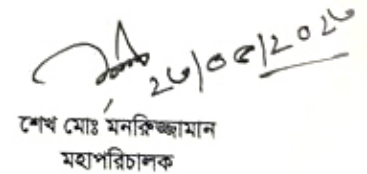 ২৬/০৫/২০২৬
শেখ মোঃ মনিরুজ্জামান
মহাপরিচালক